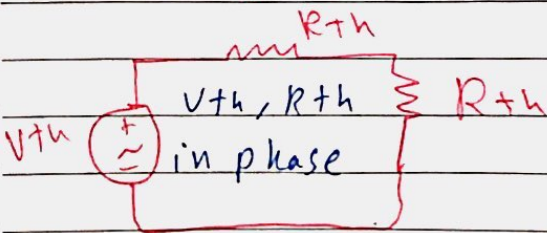 Rth
Vth, Rth
Rth
Vth
+
in phase